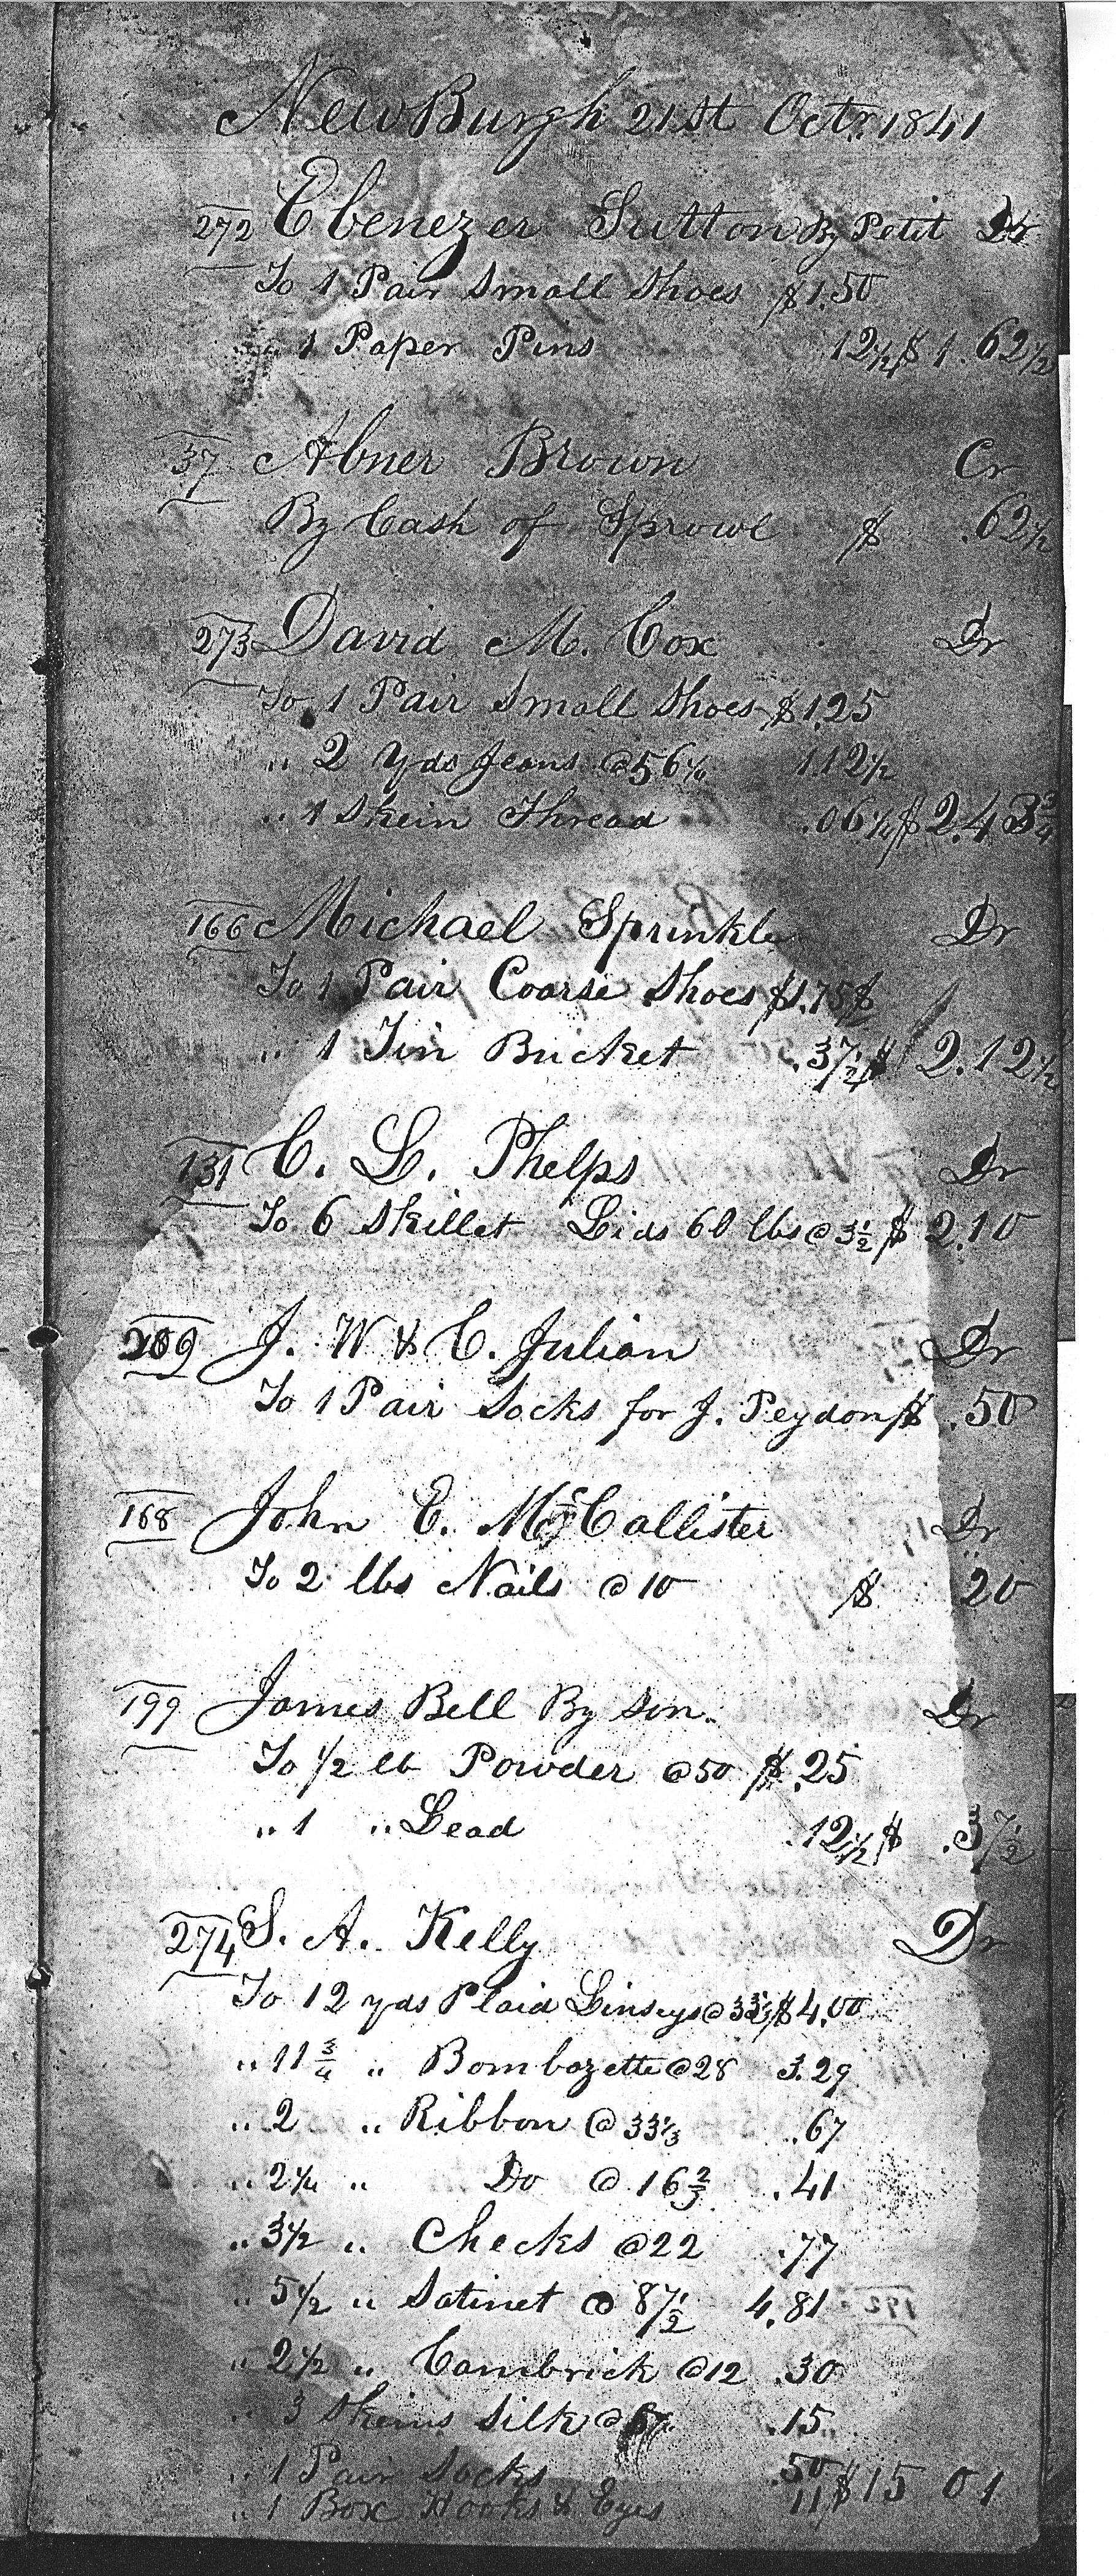 NewBurgh 21st Octr. 1841
272 Ebenezer Sutton By Petit Dr
To 1 Pair Small Shoes $1.50
" 1 Paper Pins 12½ $1.62½
37 Abner Brown Cr
By Cash of Sprowl $ .62½
273 David M. Cox Dr
To 1 Pair Small Shoes $1.25
" 2 Yds Jeans @ 56¼ 1.12½
" 1 Skein Thread .06¼ $2.43¾
166 Michael Sprinkle Dr
To 1 Pair Coarse Shoes $1.75 $
" 1 Tin Bucket .37½ $ 2.12½
131 C. L. Phelps Dr
To 6 Skillet Lids 60 lbs @ 3½ $ 2.10
209 J. W & C. Julian Dr
To 1 Pair Socks for J. Peydon $ .50
168 John E. McCallister Dr
To 2 lbs Nails @ 10 $ 20
199 James Bell By Son. Dr
To ½ lb Powder @ 50 $ .25
" 1 " Lead .12½ $ .37½
274 S. A. Kelly Dr
To 12 yds Plaid Linseys @ 33⅓ $4.00
" 11¾ " Bombazette @ 28 3.29
" 2 " Ribbon @ 33⅓ .67
" 2½ " Do @ 16⅔ .41
" 3½ " Checks @ 22 .77
" 5½ " Satinet @ 87½ 4.81
" 2½ " Cambrick @ 12 .30
" 3 Skeins Silk @ .15
" 1 Pair Socks .50
" 1 Box Hooks & Eyes 11 $15 01